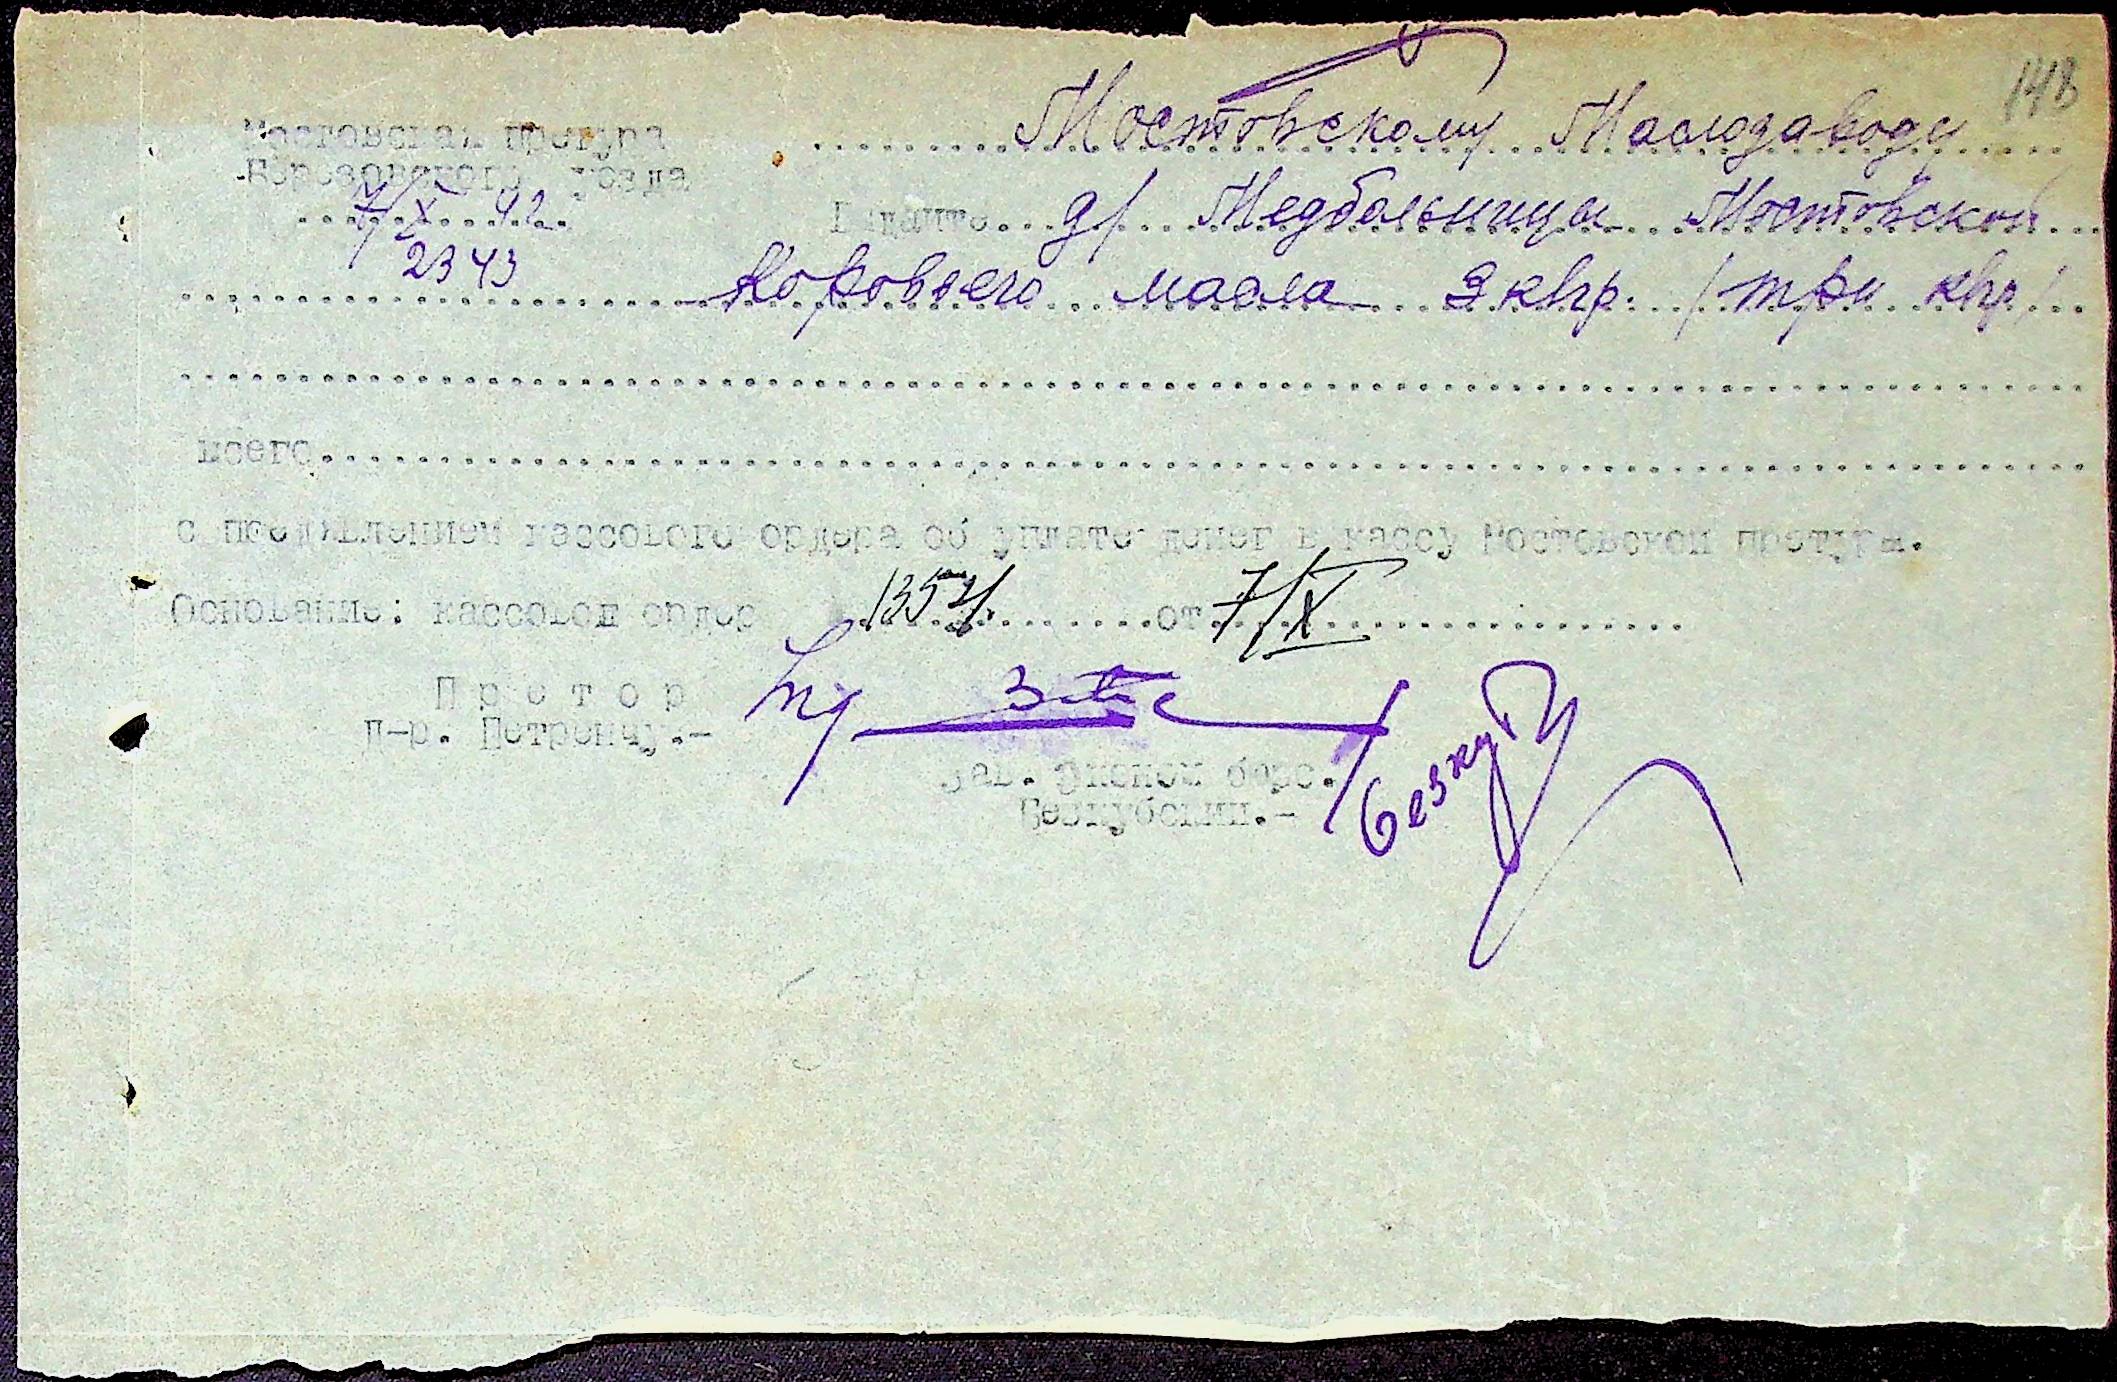 148
Мостовская претура
Березовского уезда
7/X 42.
2343
Мостовскому Маслозаводу
Выдайте д/ Медбольницы Мостовской
Коровьего масла 3 клгр. /три клгр/
всего
с предъявлением кассового ордера об уплате денег в кассу Мостовской претуры.
Основание: кассовой ордер 1354 от 7/X
Претор
Д-р. Петренчу.-
Зав. Эконом
Безкубский.-
Безкуб